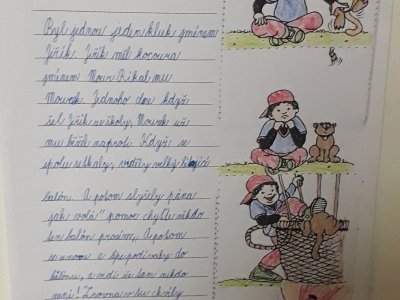 Byl jednou jeden kluk jménem
Jiřík. Jiřík měl kocoura
jménem Mour. Říkal mu
Mourek. Jednoho dne když
šel Jiřík ze školy, Mourek už
mu běžel naproti. Když se
spolu setkaly, viděly velký letící
balón. A potom slyšely pána
jak volá: "pomoc chyťte někdo
ten balón prosím„ A potom
se znovu a podívaly do
balónu, a
není! Zrovna v tu chvíly